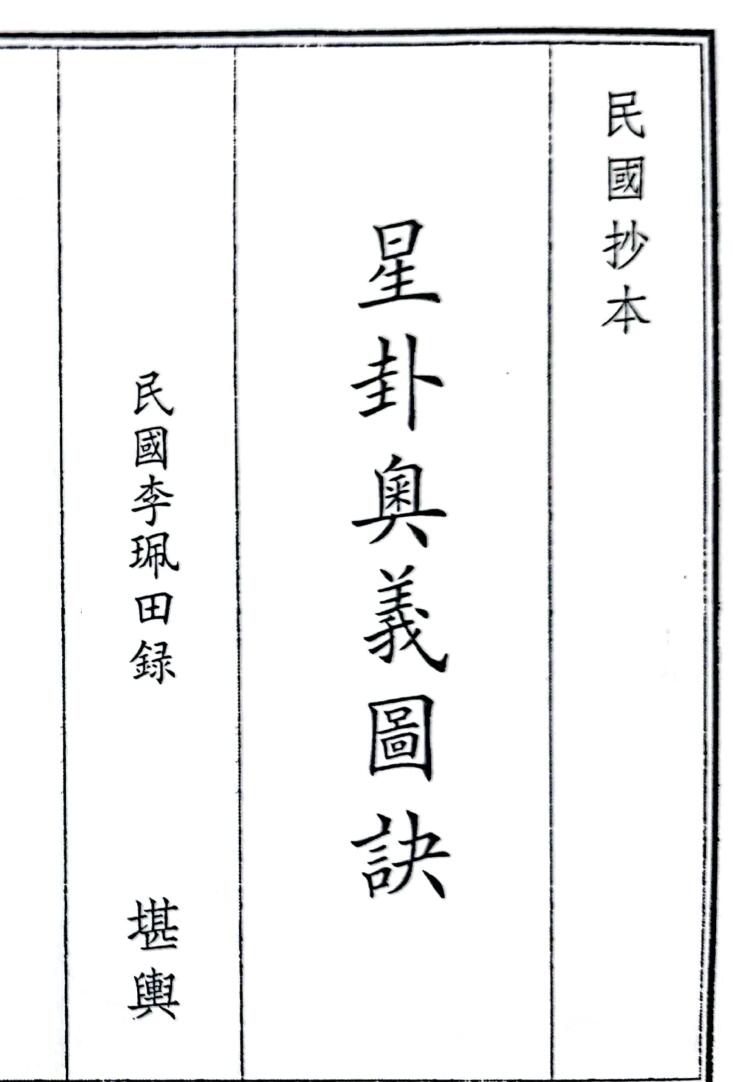 民國抄本
星卦奧義圖訣
民國李珮田録
堪輿